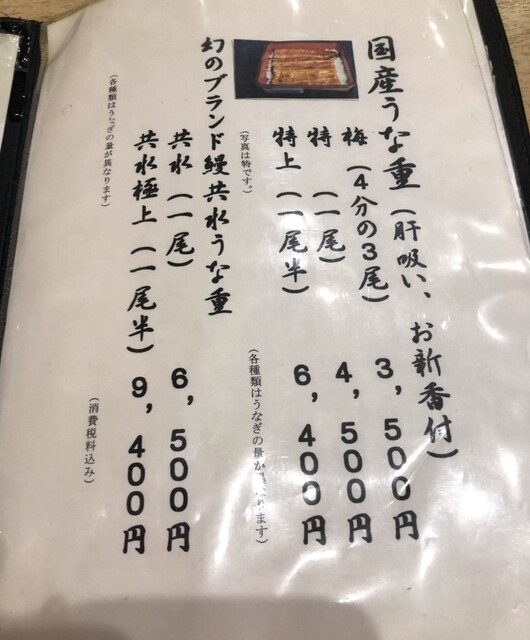 国産うな重（肝吸い、お新香付）
梅（４分の３尾）３，５００円
特（一尾）４，５００円
特上（一尾半）６，４００円
（写真は特です。）
（各種類はうなぎの量が異なります）
幻のブランド鰻共水うな重
共水（一尾）６，５００円
共水極上（一尾半）９，４００円
（各種類はうなぎの量が異なります）
（消費税料込み）